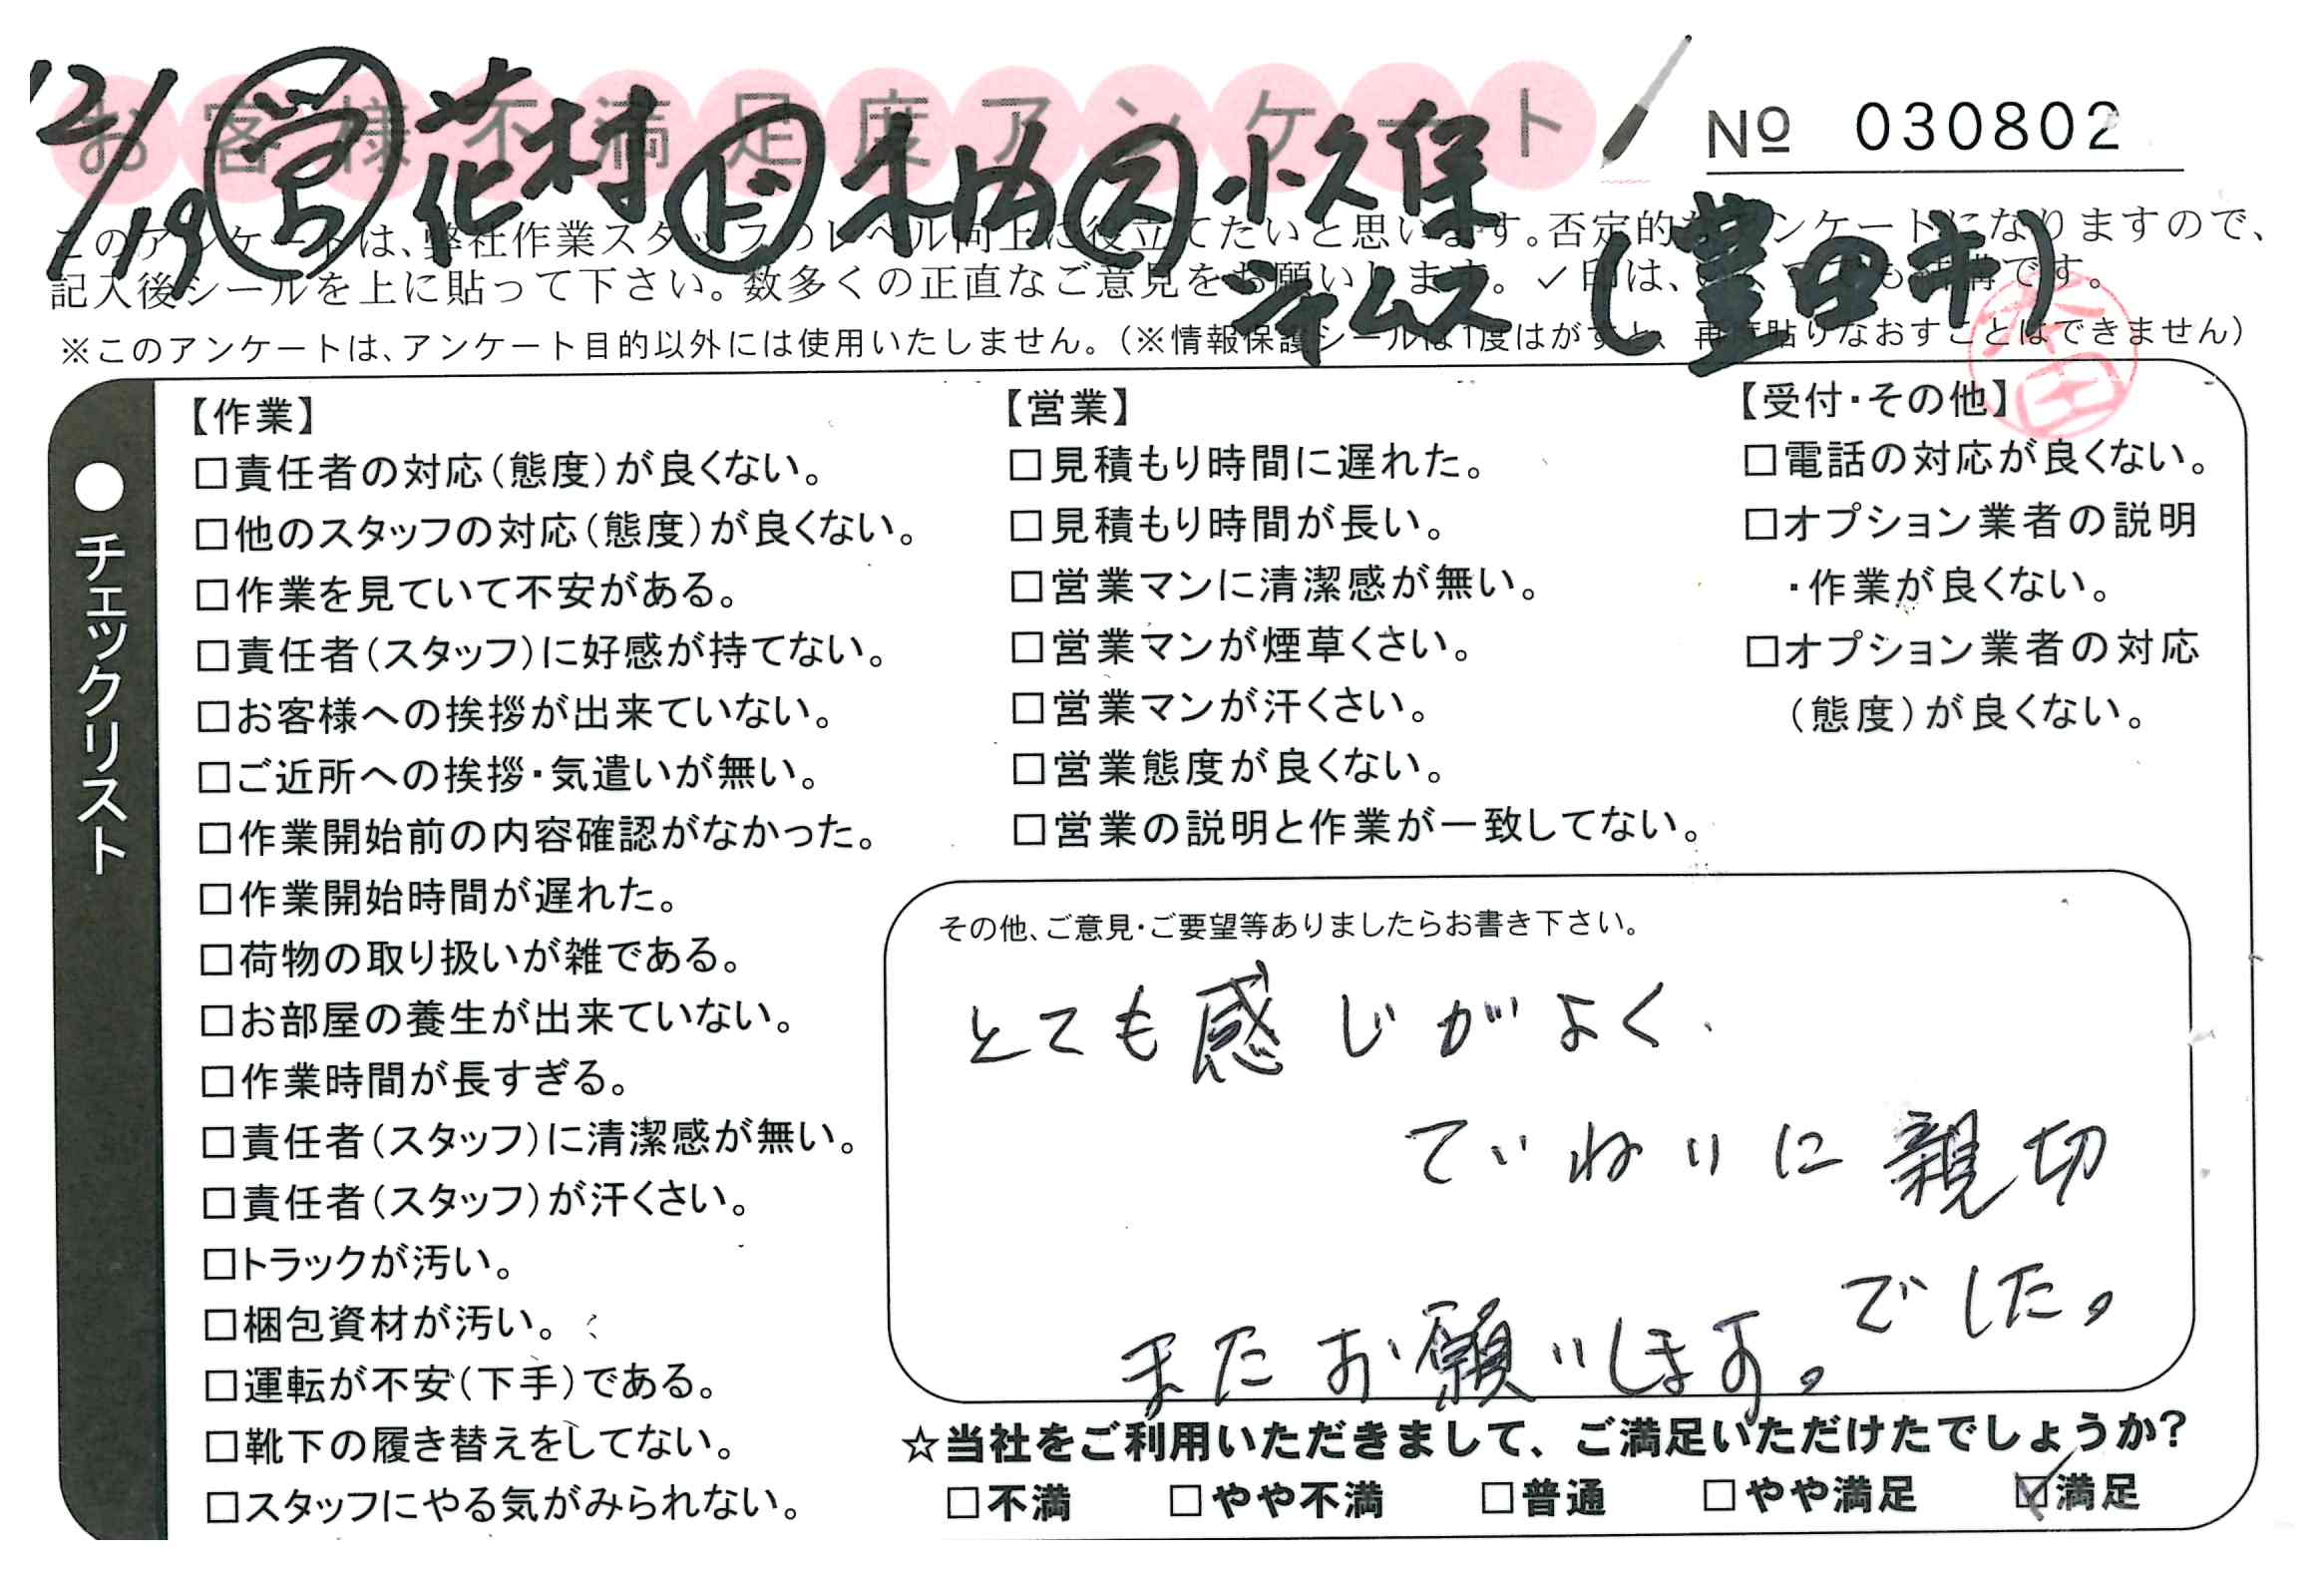 お客様不満足度アンケート
№ 030802
12/19 営 花村 ド 木内 ス 小久保
テムス (豊田市)
このアンケートは、弊社作業スタッフのレベル向上に役立てたいと思います。否定的なアンケートになりますので、
記入後シールを上に貼って下さい。数多くの正直なご意見をお願いします。✓印は、いくつでも結構です。
※このアンケートは、アンケート目的以外には使用いたしません。(※情報保護シールは1度はがすと、再度貼りなおすことはできません)
●チェックリスト
【作業】
□責任者の対応(態度)が良くない。
□他のスタッフの対応(態度)が良くない。
□作業を見ていて不安がある。
□責任者(スタッフ)に好感が持てない。
□お客様への挨拶が出来ていない。
□ご近所への挨拶・気遣いが無い。
□作業開始前の内容確認がなかった。
□作業開始時間が遅れた。
□荷物の取り扱いが雑である。
□お部屋の養生が出来ていない。
□作業時間が長すぎる。
□責任者(スタッフ)に清潔感が無い。
□責任者(スタッフ)が汗くさい。
□トラックが汚い。
□梱包資材が汚い。
□運転が不安(下手)である。
□靴下の履き替えをしてない。
□スタッフにやる気がみられない。
【営業】
□見積もり時間に遅れた。
□見積もり時間が長い。
□営業マンに清潔感が無い。
□営業マンが煙草くさい。
□営業マンが汗くさい。
□営業態度が良くない。
□営業の説明と作業が一致してない。
【受付・その他】
□電話の対応が良くない。
□オプション業者の説明
・作業が良くない。
□オプション業者の対応
(態度)が良くない。
その他、ご意見・ご要望等ありましたらお書き下さい。
とても感じがよく、
ていねいに親切
でした。
またお願いします。
☆当社をご利用いただきまして、ご満足いただけたでしょうか?
□不満 □やや不満 □普通 □やや満足 ☑満足